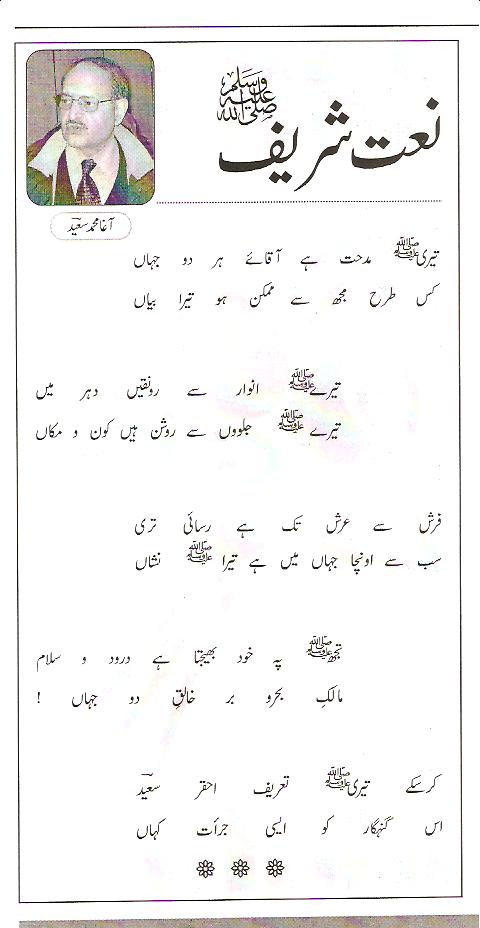 نعت شریف ﷺ
آغا محمد سعیدؔ
تیری ﷺ مدحت ہے آقائے ہر دو جہاں
کس طرح مجھ سے ممکن ہو تیرا بیاں
تیرے ﷺ انوار سے رونقیں دہر میں
تیرے ﷺ جلووں سے روشن ہیں کون و مکاں
فرش سے عرش تک ہے رسائی تری
سب سے اونچا جہاں میں ہے تیرا ﷺ نشاں
تجھ ﷺ پہ خود بھیجتا ہے درود و سلام
مالکِ بحرو بر خالقِ دو جہاں !
کرسکے تیری ﷺ تعریف احقر سعیدؔ
اس گنہگار کو ایسی جرأت کہاں